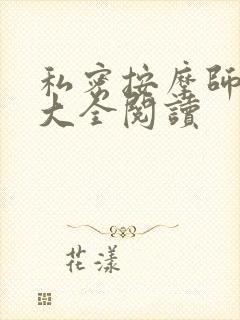 私密按摩師
大全閱讀
花漾